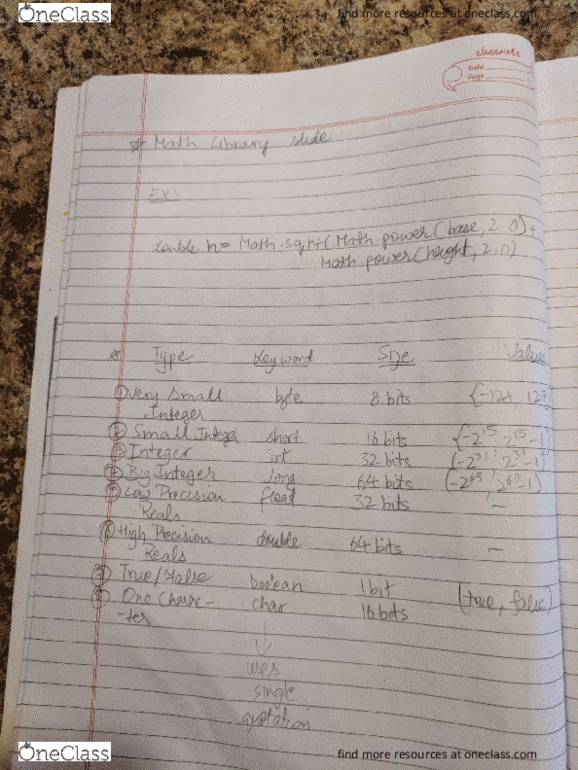 OneClass
find more resources at oneclass.com
classmate
Date
Page
* Math Library slide
Ex:
double h = Math.sqrt(Math.power(base, 2.0) +
Math.power(height, 2.0)
* Type Keyword Size Value
① Very Small byte 8 bits {-128, 127
Integer
② Small Integer short 16 bits {-2^15, 2^15-1}
③ Integer int 32 bits (-2^31, 2^31-1)
④ Big Integer long 64 bits (-2^63, 2^63-1)
⑤ Low Precision float 32 bits —
Reals
⑥ High Precision double 64 bits —
Reals
⑦ True/False boolean 1 bit (true, false)
⑧ One Charac- char 16 bits
-ter
↓
uses
single
quotation
OneClass
find more resources at oneclass.com